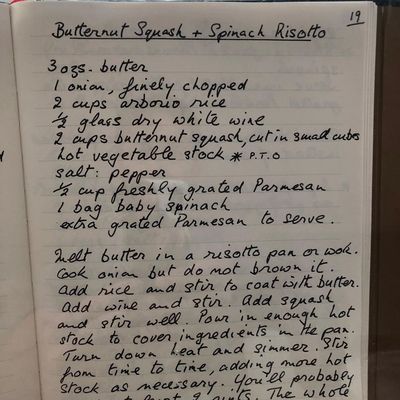 19
Butternut Squash + Spinach Risotto
3 ozs. butter
1 onion, finely chopped
2 cups arborio rice
½ glass dry white wine
2 cups butternut squash, cut in small cubes
hot vegetable stock * P.T.O
salt: pepper
½ cup freshly grated Parmesan
1 bag baby spinach
extra grated Parmesan to serve.
Melt butter in a risotto pan or wok.
Cook onion but do not brown it.
Add rice and stir to coat with butter.
Add wine and stir. Add squash
and stir well. Pour in enough hot
stock to cover ingredients in the pan.
Turn down heat and simmer. Stir
from time to time, adding more hot
stock as necessary. You'll probably
pints. The whole